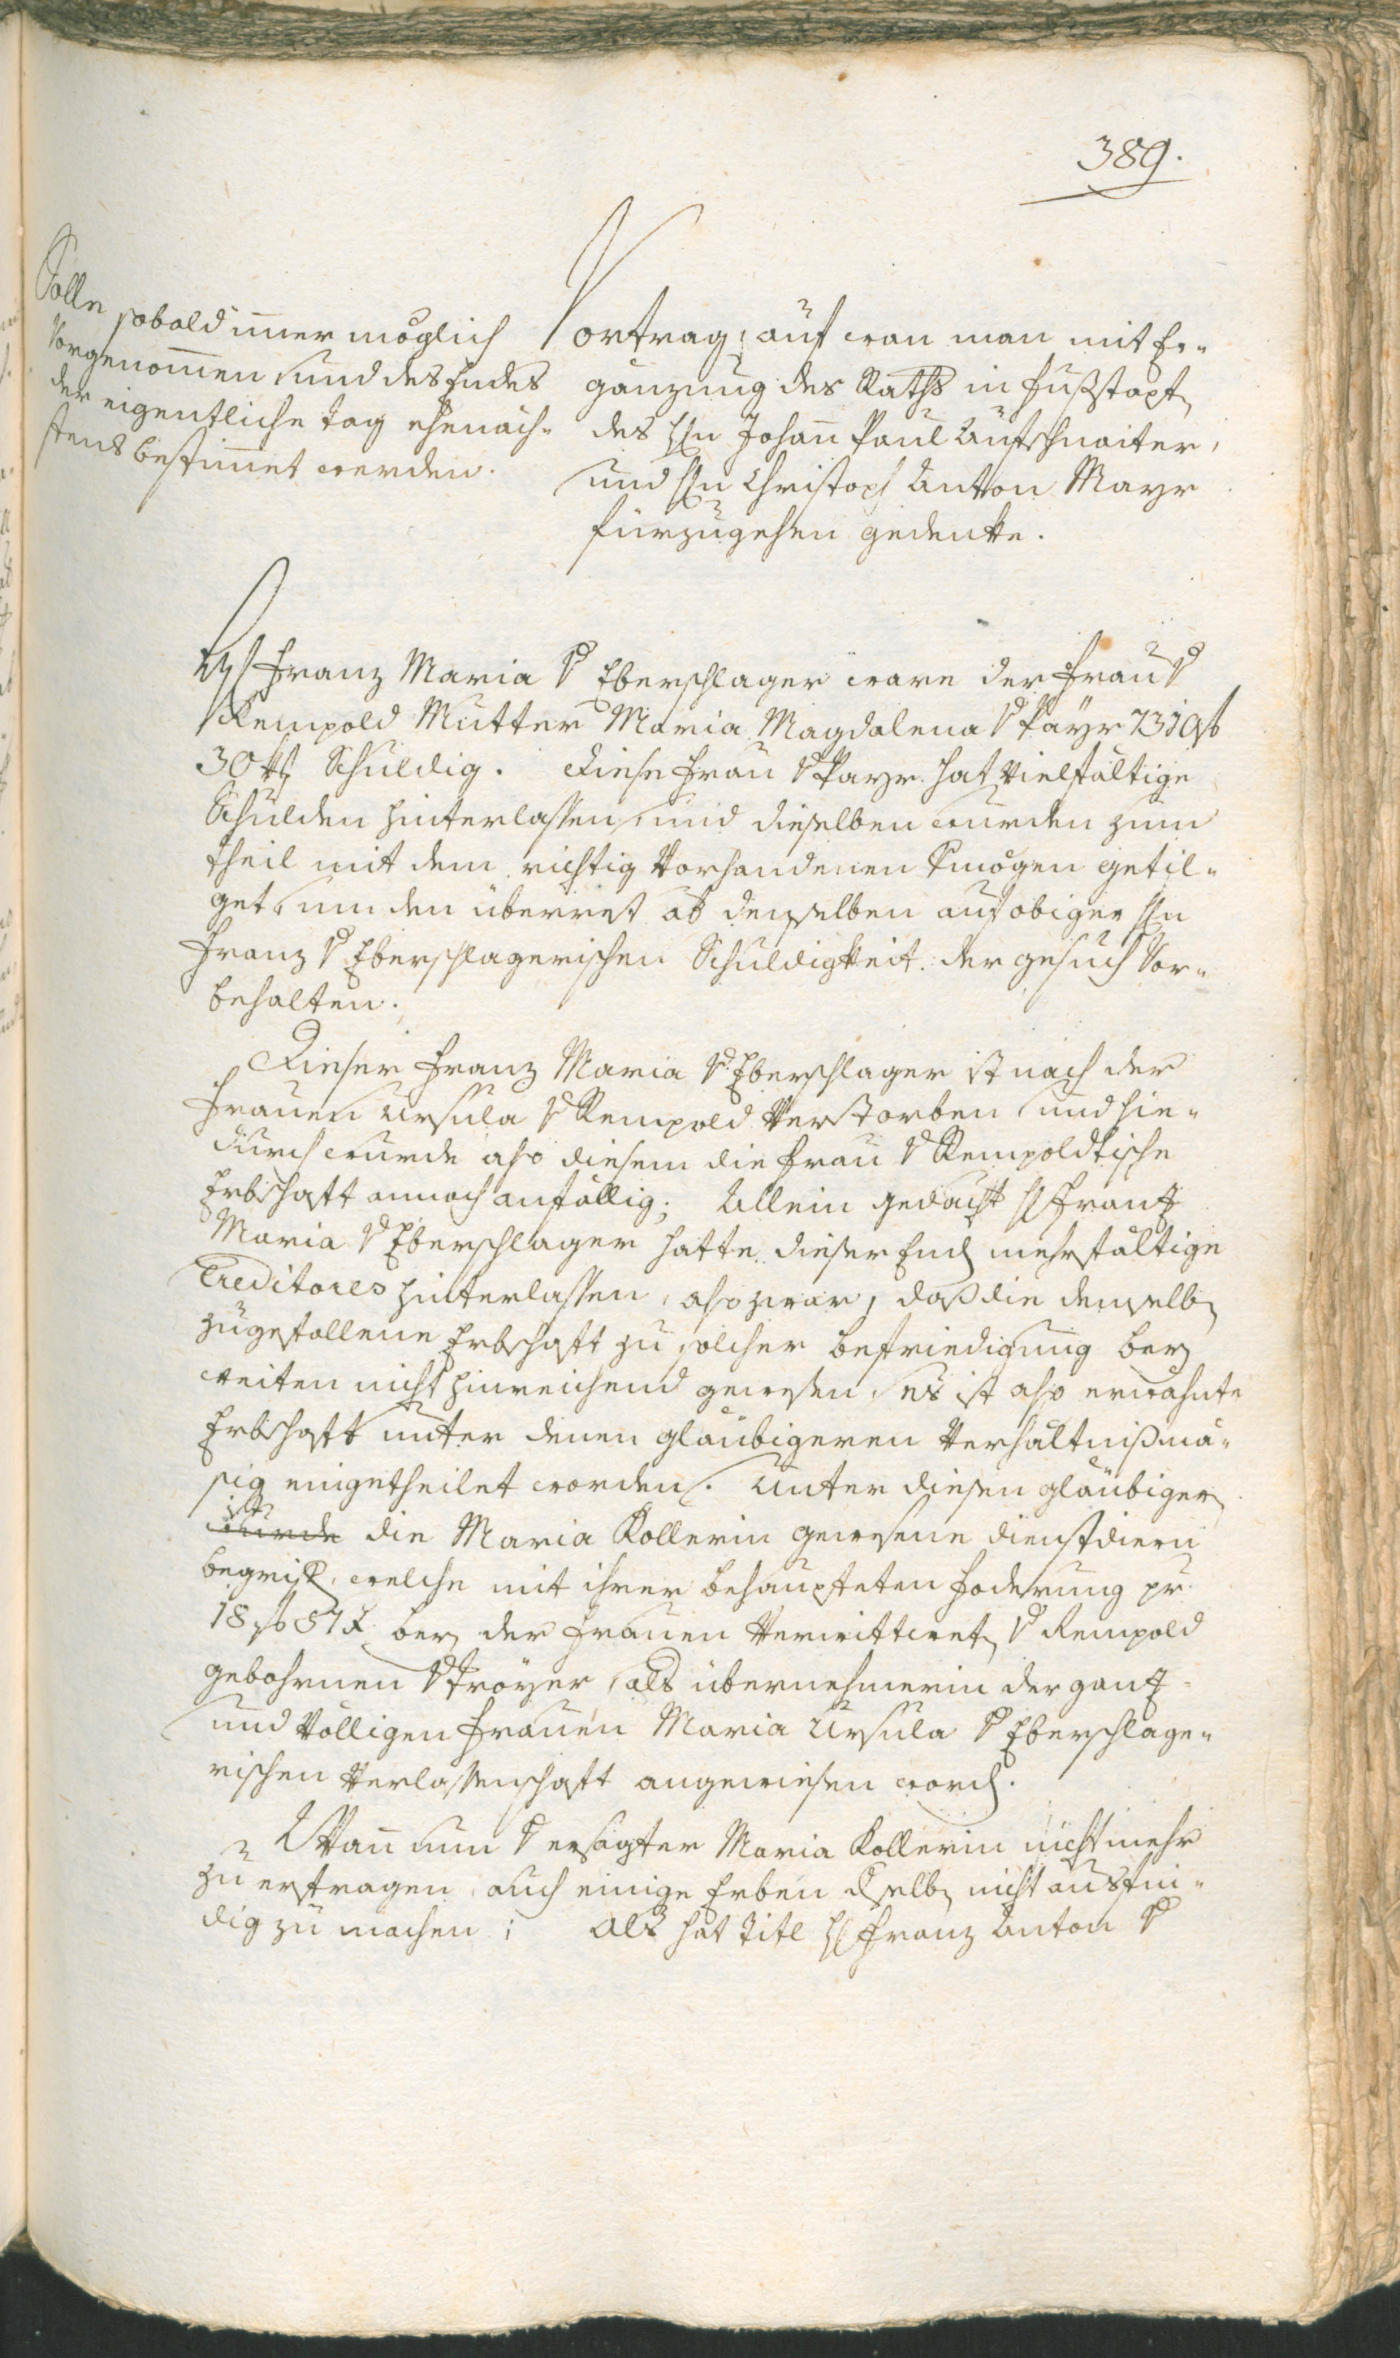 389.
Solle sobald im̄er möglich
vorgenom̄en, und des Endes
der eigentliche tag ehenäch-
stens bestim̄et werden.
Vortrag, auf wan man mit Er-
gänzung des Raths in fußstapf
des Hn Johan̄ Paul Aufschnaiter,
und Hn Christoph Anton Mayr
fürzugehen gedenkte.
H Franz Maria v Eberschlager ware der Frau v
Rempold Mutter Maria Magdalena v Payr 731 f
30 x Schuldig. Diese Frau v Payr hat vielfältige
Schulden hinterlassen, und dieselben wurden zum
theil mit dem richtig vorhandenen vmögen getil-
get, um den überrest ab denselben auf obiger Hn
Franz v Eberschlagerischen Schuldigkeit der gesuch vor-
behalten.
Dieser Franz Maria v Eberschlager ist nach der
Frauen Ursula v Rempold verstorben, und hie-
durch wurde also diesem die Frau v Rempoldtische
Erbschaft annoch anfällig; Allein gedacht H Frantz
Maria v Eberschlager hatte dieser End mehrfältige
Creditores hinterlassen, also zwar, daß die denselb
zugefallene Erbschaft zu solcher befriedigung bey
weiten nicht hinreichend gewesen, es ist also erwähnte
Erbschaft unter denen gläubigeren verhältnißmä-
sig eingetheilet worden. Unter diesen gläubiger
ist
wurde die Maria Kollerin gewesene dienstdiern
begrif, welche mit ihrer behaupteten foderung pr
18 f 57 x bey der Frauen verwittwet v Rempold
gebohrnen v Troyer, als übernehmerin der gantz
und völligen Frauen Maria Ursula v Eberschlage-
rischen verlassenschaft angewiesen word.
Wan̄ nun v ersagter Maria Kollerin nicht mehr
zu erfragen, auch einige Erben dselb nicht ausfin-
dig zu machen; als hat Titl H Franz Anton v